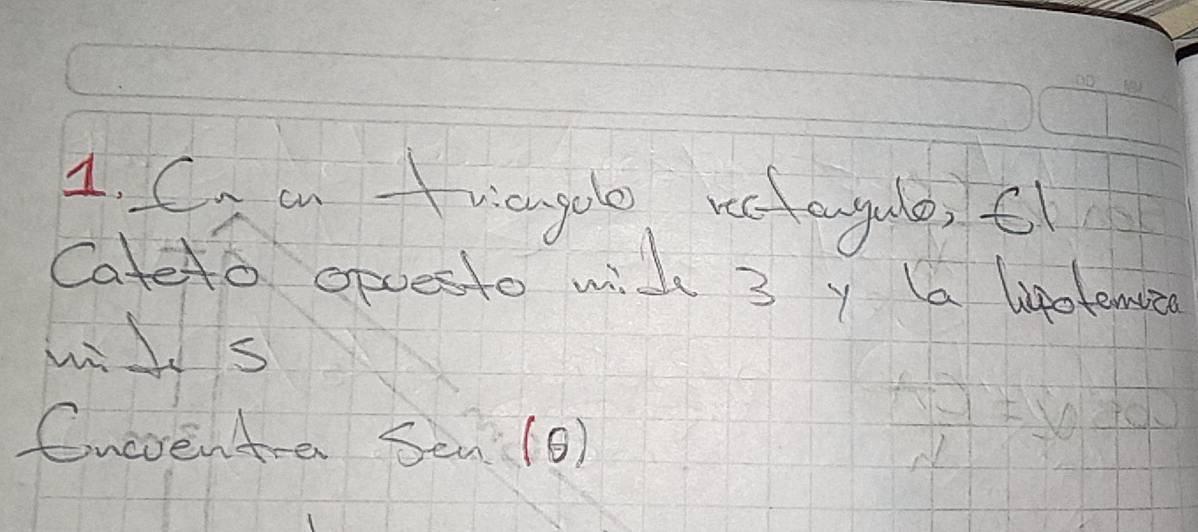 1. En un triangulo rectangulo, El
Cateto opuesto mide 3 y la hipotemuza
mide 5
Encuentra Sen (θ)